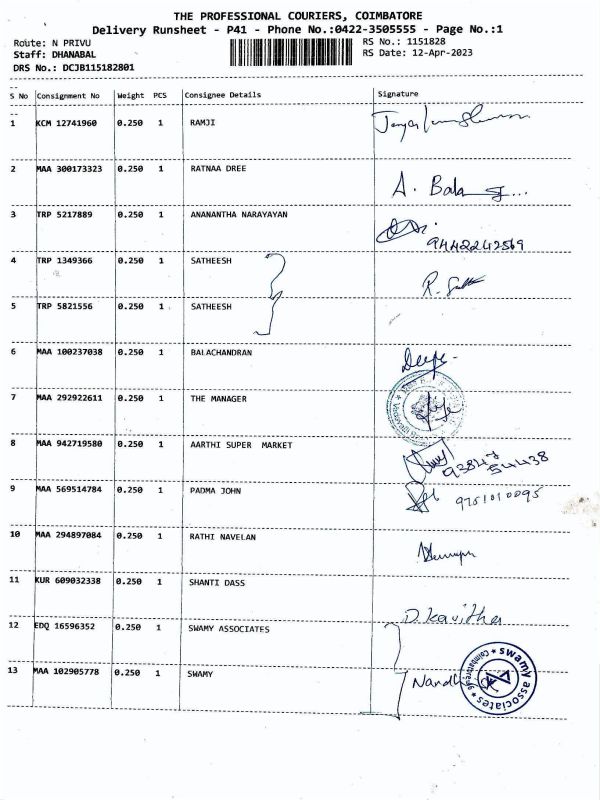 THE PROFESSIONAL COURIERS, COIMBATORE
Delivery Runsheet - P41 - Phone No.:0422-3505555 - Page No.:1
Route: N PRIVU RS No.: 1151828
Staff: DHANABAL RS Date: 12-Apr-2023
DRS No.: DCJB115182801
S No Consignment No Weight PCS Consignee Details Signature
1 KCM 12741960 0.250 1 RAMJI
2 MAA 300173323 0.250 1 RATNAA DREE
A. Bala
3 TRP 5217889 0.250 1 ANANANTHA NARAYAYAN
9442242569
4 TRP 1349366 0.250 1 SATHEESH
R.
5 TRP 5821556 0.250 1 SATHEESH
6 MAA 100237038 0.250 1 BALACHANDRAN
7 MAA 292922611 0.250 1 THE MANAGER
8 MAA 942719580 0.250 1 AARTHI SUPER MARKET
92847
54438
9 MAA 569514784 0.250 1 PADMA JOHN
9751010095
10 MAA 294897084 0.250 1 RATHI NAVELAN
11 KUR 609032338 0.250 1 SHANTI DASS
D. Kavitha
12 EDQ 16596352 0.250 1 SWAMY ASSOCIATES
13 MAA 102905778 0.250 1 SWAMY
Nandh
swamy associates